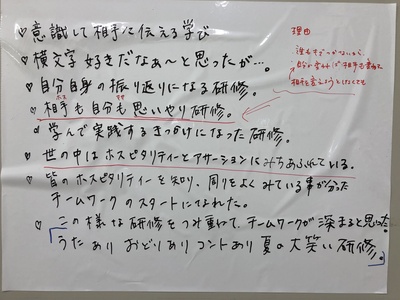 ♡ 意識して相手に伝える学び
♡ 横文字好きだなぁ〜と思ったが…。
♡ 自分自身の振り返りになる研修。
♡ 相手も自分も思いやり研修。
ホス アサ
♡ 学んで実践するきっかけになった研修。
♡ 世の中はホスピタリティーとアサーションに満ちあふれている。
♡ 皆のホスピタリティーを知り、周りをよくみている事が分った
チームワークのスタートになれた。
♡ この様な研修をつみ重ねて、チームワークが深まると思った。
「うたあり おどりあり コントあり 夏の大笑い研修。」
理由
自分が
相手も
相手を